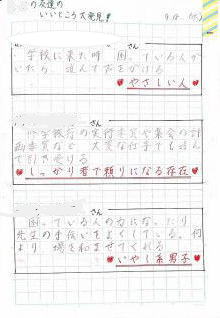 の友達の
いいところ大発見!!
さん
学校に来た時、困っている人が
いたら、進んで声をかける
♥やさしい人
さん
修学旅行の実行委員や集会の計
画委員など、大変な仕事でも進ん
で引き受ける
♥しっかり者で頼りになる存在♥
さん
困っている人の力になったり
先生の手伝いをよくしている。何
より、場を和ませてくれる
♥いやし系男子♥